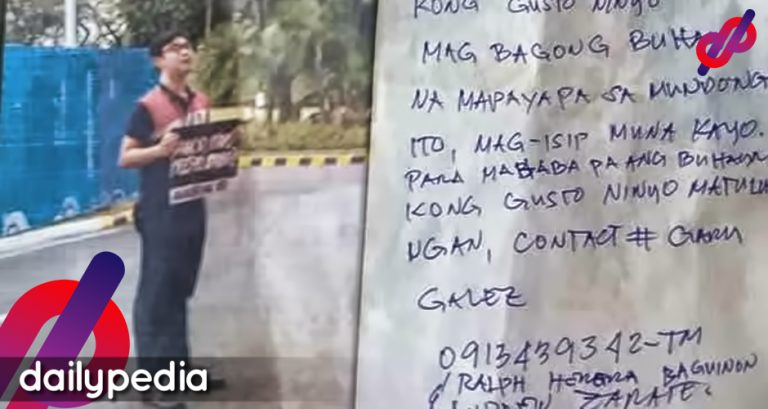 KONG GUSTO NINYO
MAG BAGONG BUHA
NA MAPAYAPA SA MUNDONG
ITO, MAG-ISIP MUNA KAYO.
PARA MAHABA PA ANG
KONG GUSTO NINYO MATULU
UGAN, CONTACT # GARY
GALEZ
0913439342-TM
RALPH HERERA BAGUINON
ZARATE.
dailypedia